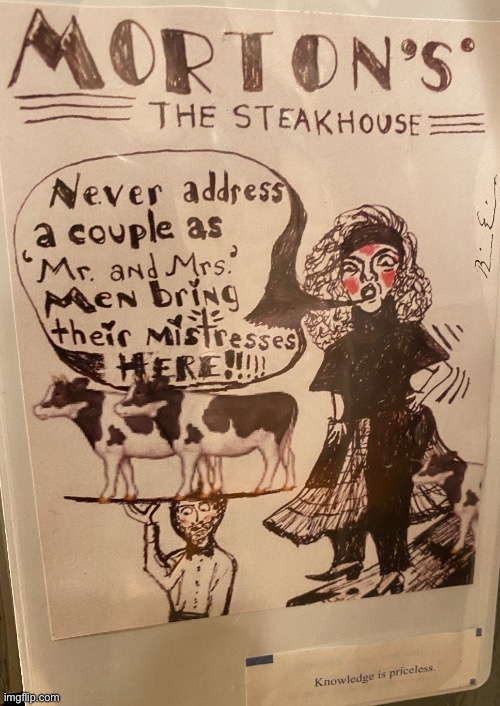 MORTON'S
THE STEAKHOUSE
Never address
a couple as
'Mr. and Mrs.'
Men bring
their mistresses
HERE!!!!!
Knowledge is priceless.
imgflip.com